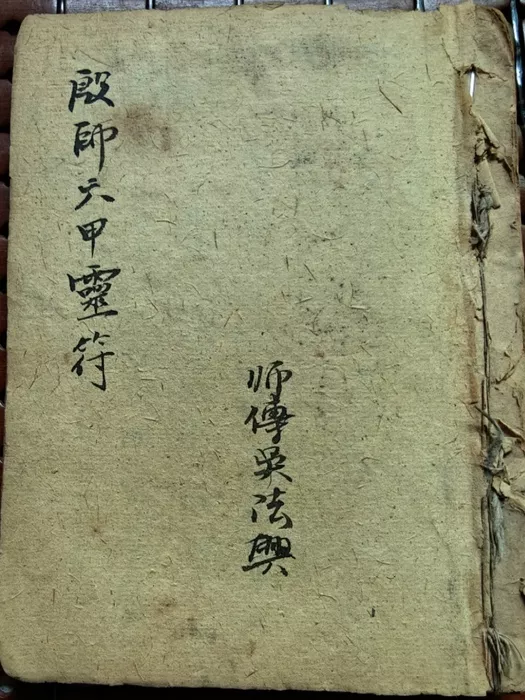 殷師六甲靈符
师傳吳法興